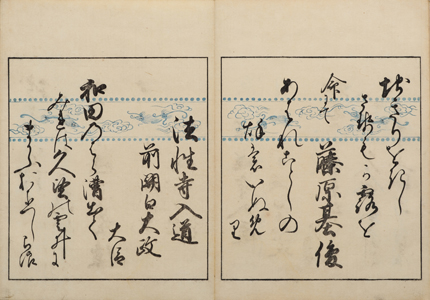 ちきりをきし
させもか露を
命にて
藤原基俊
あはれことしの
秋もいぬめ
里
法性寺入道
前関白太政
大臣
和田のはら漕出て
みれは久堅の雲井に
まかふおきつしら波